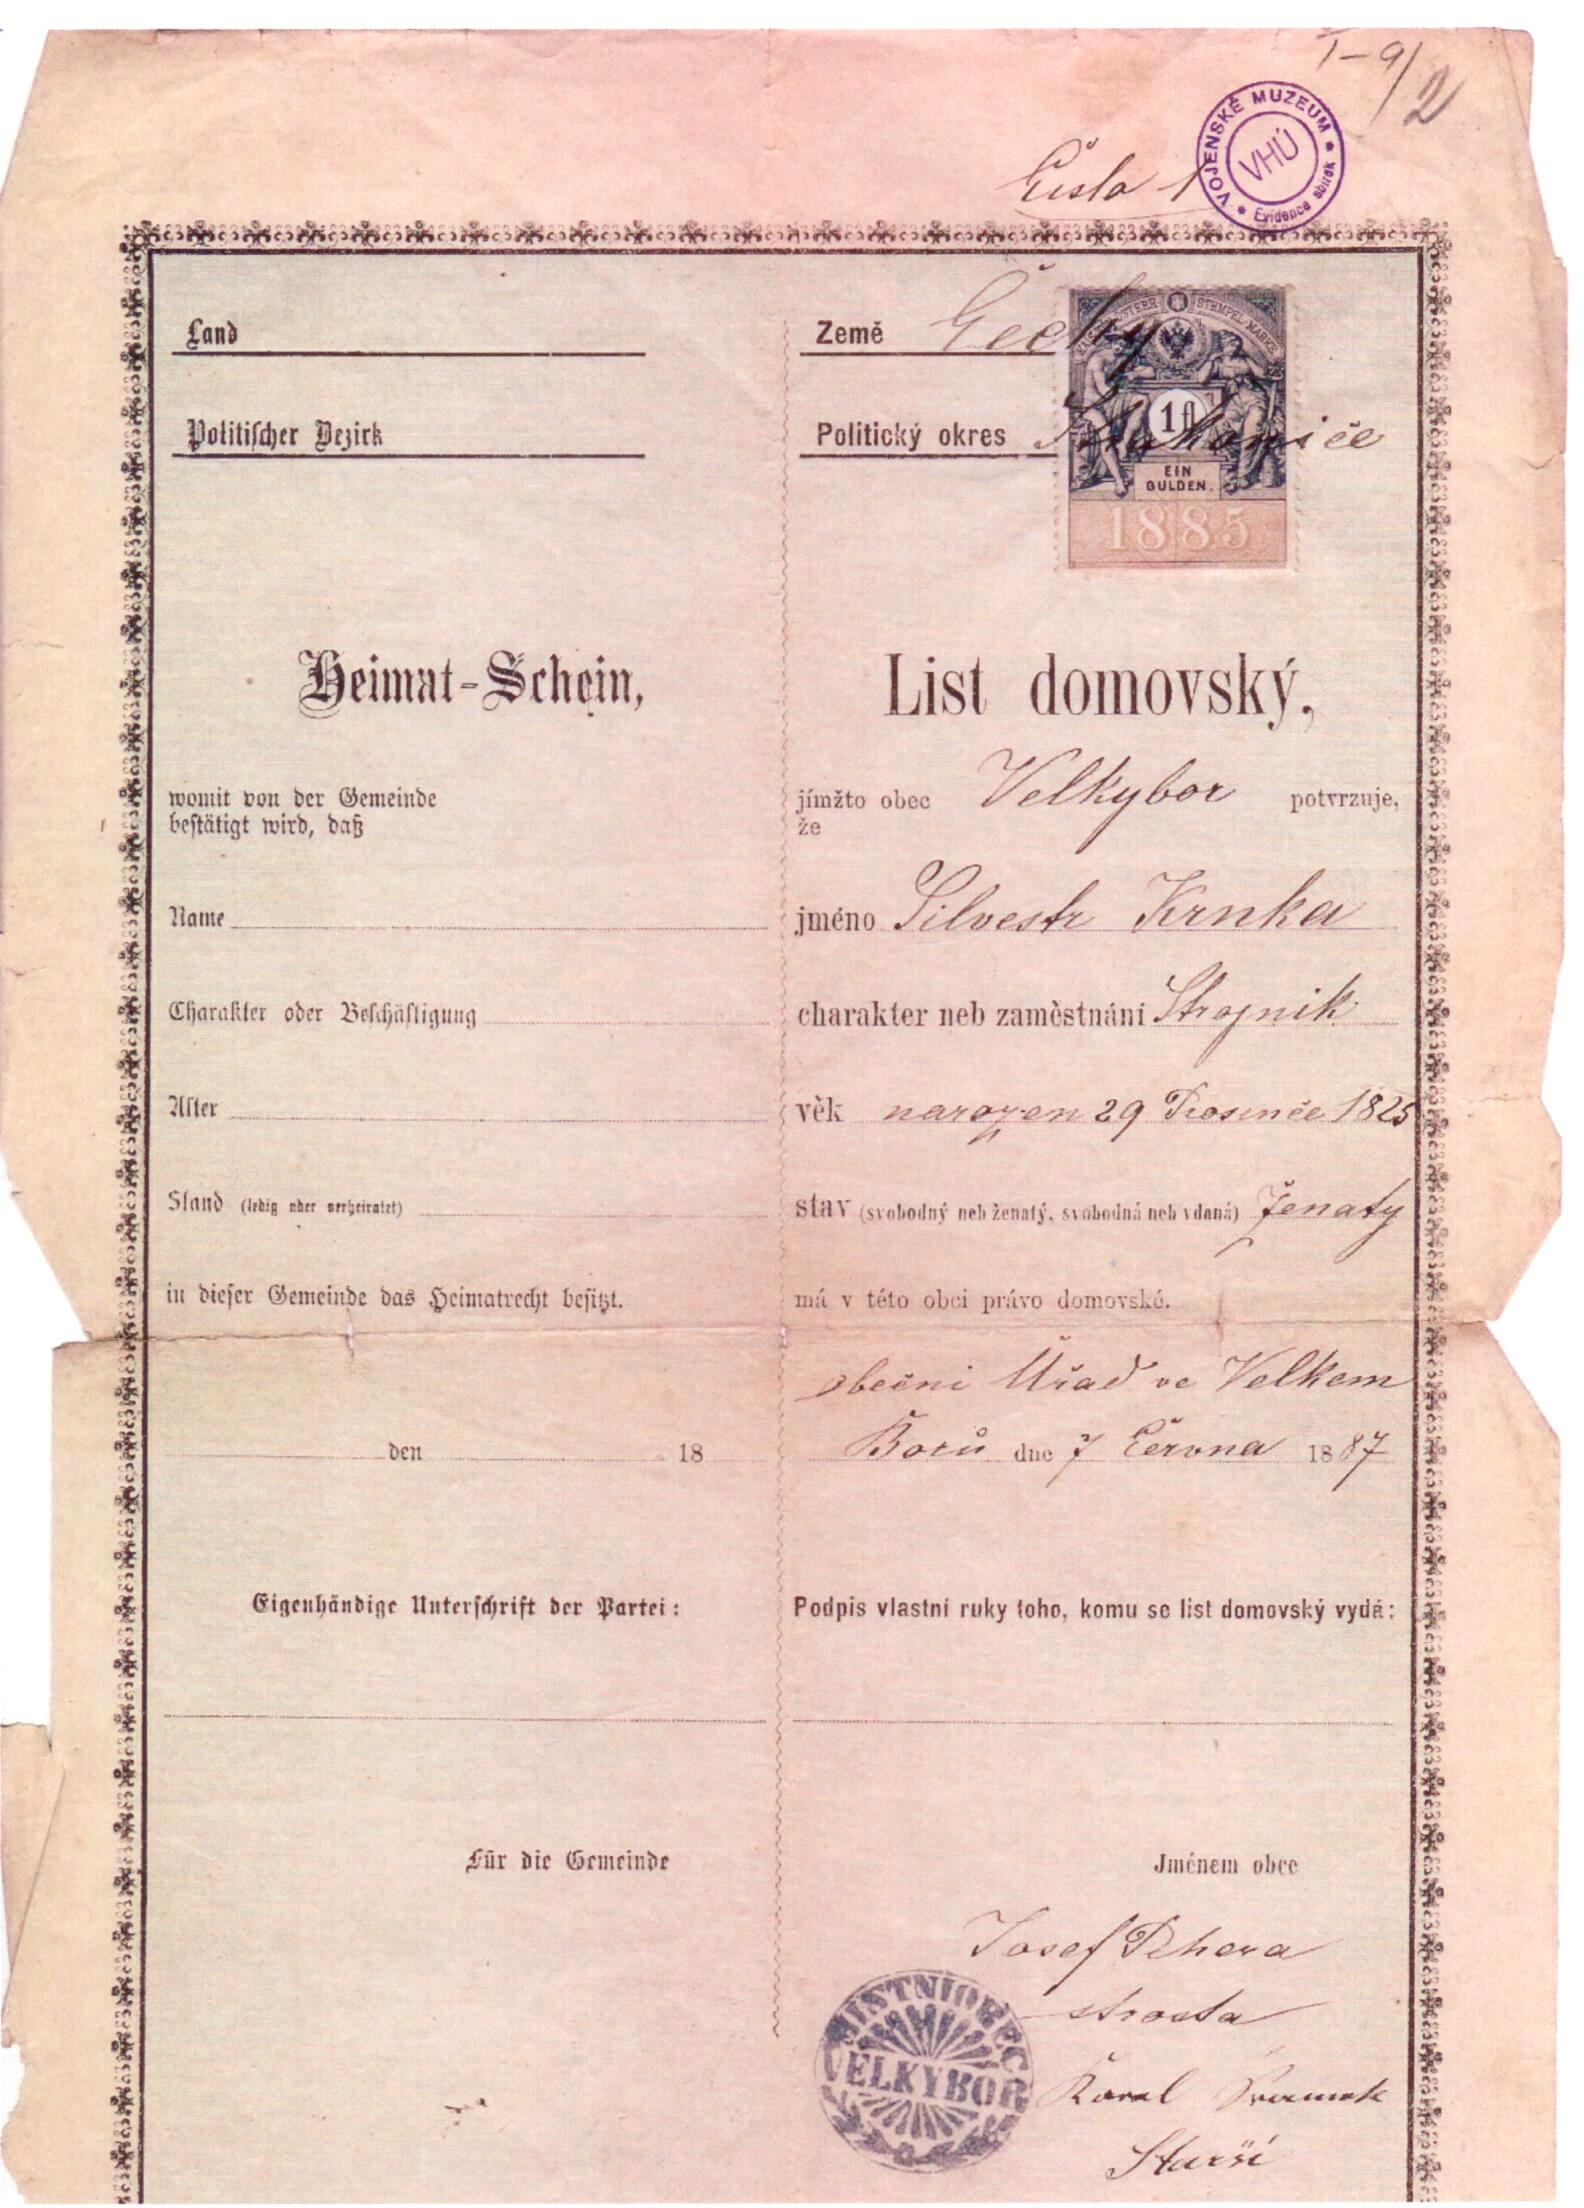 I-9/2
VOJENSKÉ MUZEUM
VHÚ
Evidence sbírek
Číslo 1
Land
Země Čechy
STEMPEL MARKE
Politischer Bezirk
Politický okres Strakonice
1 fl
EIN
GULDEN.
1885
Heimat-Schein,
List domovský,
womit von der Gemeinde
bestätigt wird, daß
jímžto obec Velkybor potvrzuje,
že
Name
jméno Silvestr Krnka
Charakter oder Beschäftigung
charakter neb zaměstnání Strojnik
Alter
věk narozen 29 Prosince 1825
Stand (ledig oder verheiratet)
stav (svobodný neb ženatý, svobodná neb vdaná) ženaty
in dieser Gemeinde das Heimatrecht besitzt.
má v této obci právo domovské.
obecni Úřad ve Velkem
den 18
Borů dne 7 Června 1887
Eigenhändige Unterschrift der Partei:
Podpis vlastní ruky toho, komu se list domovský vydá:
Für die Gemeinde
Jménem obce
Josef
MÍSTNI OBEC
VELKYBOR
Karel
Starší